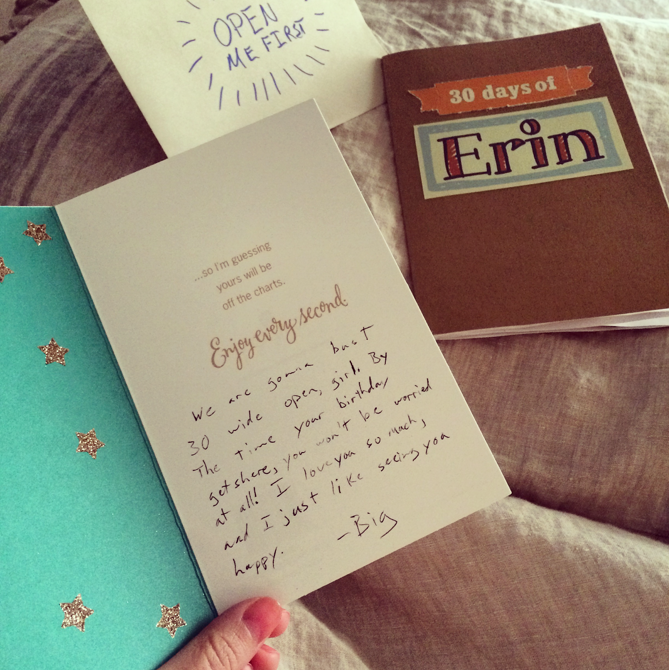 OPEN
ME FIRST
30 days of
Erin
...so I'm guessing
yours will be
off the charts.
Enjoy every second.
We are gonna bust
30 wide open, girl. By
The time your birthday
gets here, you won't be worried
at all! I love you so much,
and I just like seeing you
happy.
-Big